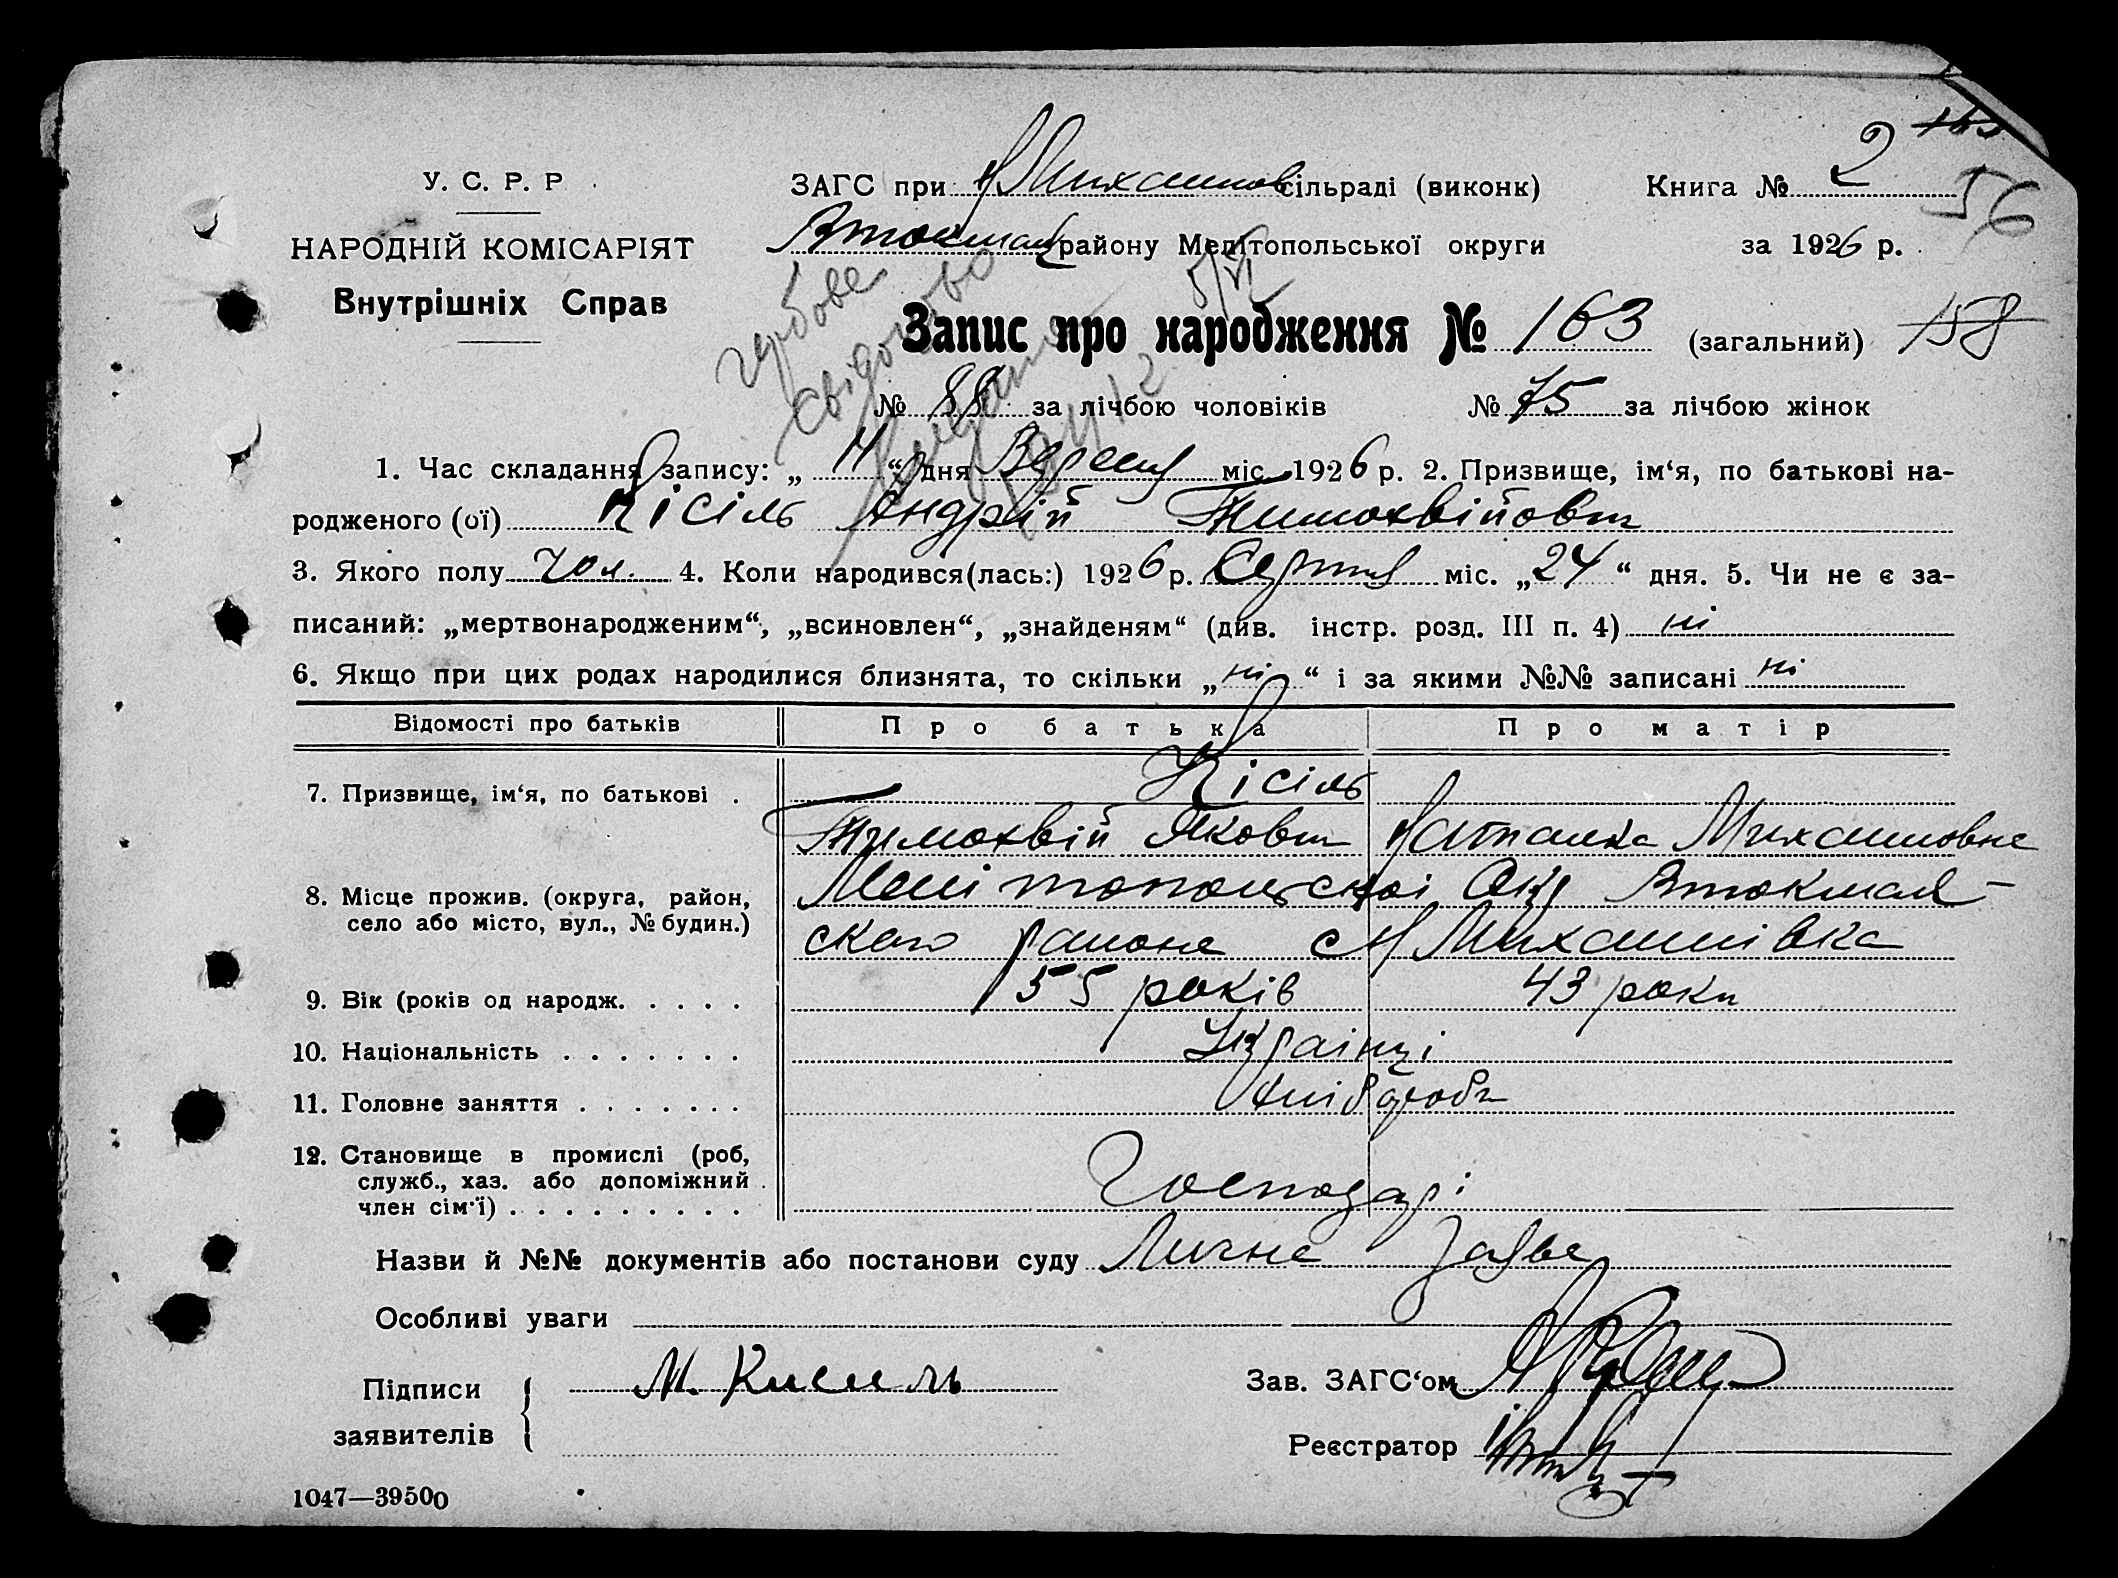 У. С. Р. Р.
НАРОДНІЙ КОМІСАРІЯТ
Внутрішніх Справ
ЗАГС при Н Михайлов сільраді (виконк)
Втокмац району Мелітопольської округи
Книга № 2
56
за 1926 р.
гербове
свідоцтво
Запис про народження № 163 (загальний) 158
№ 88 за лічбою чоловіків № 75 за лічбою жінок
1. Час складання запису: „ 11 “ дня Вересня міс. 1926 р. 2. Призвище, ім‘я, по батькові на-
родженого (ої) Кісіль Андрій Тимохвійовт
3. Якого полу чол. 4. Коли народився(лась:) 1926 р. Серпня міс. „24“ дня. 5. Чи не є за-
писаний: „мертвонародженим“, „всиновлен“, „знайденям“ (див. інстр. розд. III п. 4) ні
6. Якщо при цих родах народилися близнята, то скільки „ні“ і за якими №№ записані ні
Відомості про батьків Про батька Про матір
7. Призвище, ім‘я, по батькові . Кісіль
Тимохвій Яковт Наталка Михайловна
8. Місце прожив. (округа, район,
село або місто, вул., № будин.)
Мелітопольскоі Окр Втокмац-
ского района с Н Михайлівка
9. Вік (років од народж. . . . . 55 років 43 роки
10. Національність . . . . . . . Українці
11. Головне заняття . . . . . . . хліборобт
12. Становище в промислі (роб,
служб., хаз. або допоміжний
член сім‘ї) . . . . . . . . . Господарі
Назви й №№ документів або постанови суду Лична заява
Особливі уваги
Підписи
заявителів
М. Кисиль
Зав. ЗАГС‘ом
Реєстратор
1047—39500